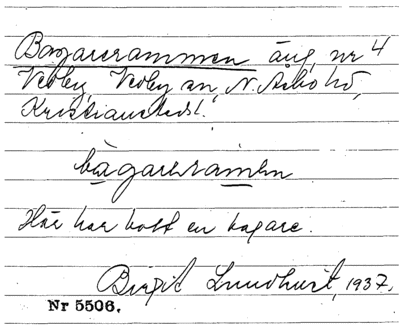 Bagarerammen äng, nr 4
Vedby, Vedby sn, N. Åsbo hd,
Kristianstads l.
bagareramen
Här har bott en bagare.
Birgit Lundkvist, 1937.
Nr 5506.